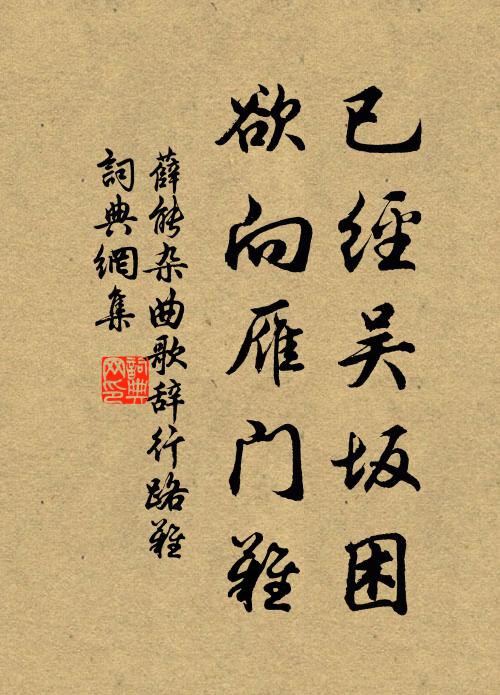 已經吴坂困
欲向雁门難
薛能杂曲歌辞行路難
詞典網集
詞典网印